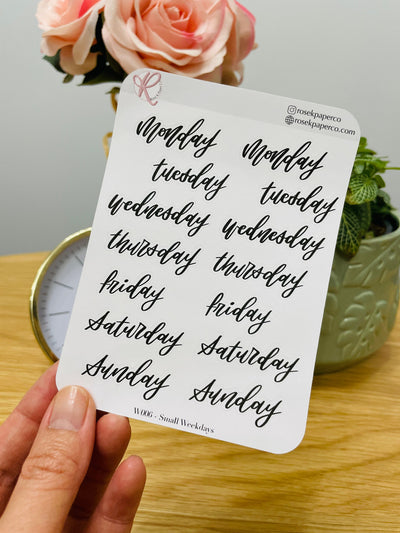 rosekpaperco
rosekpaperco.com
monday monday
tuesday tuesday
wednesday wednesday
thursday thursday
friday friday
Saturday Saturday
Sunday Sunday
W006 - Small Weekdays